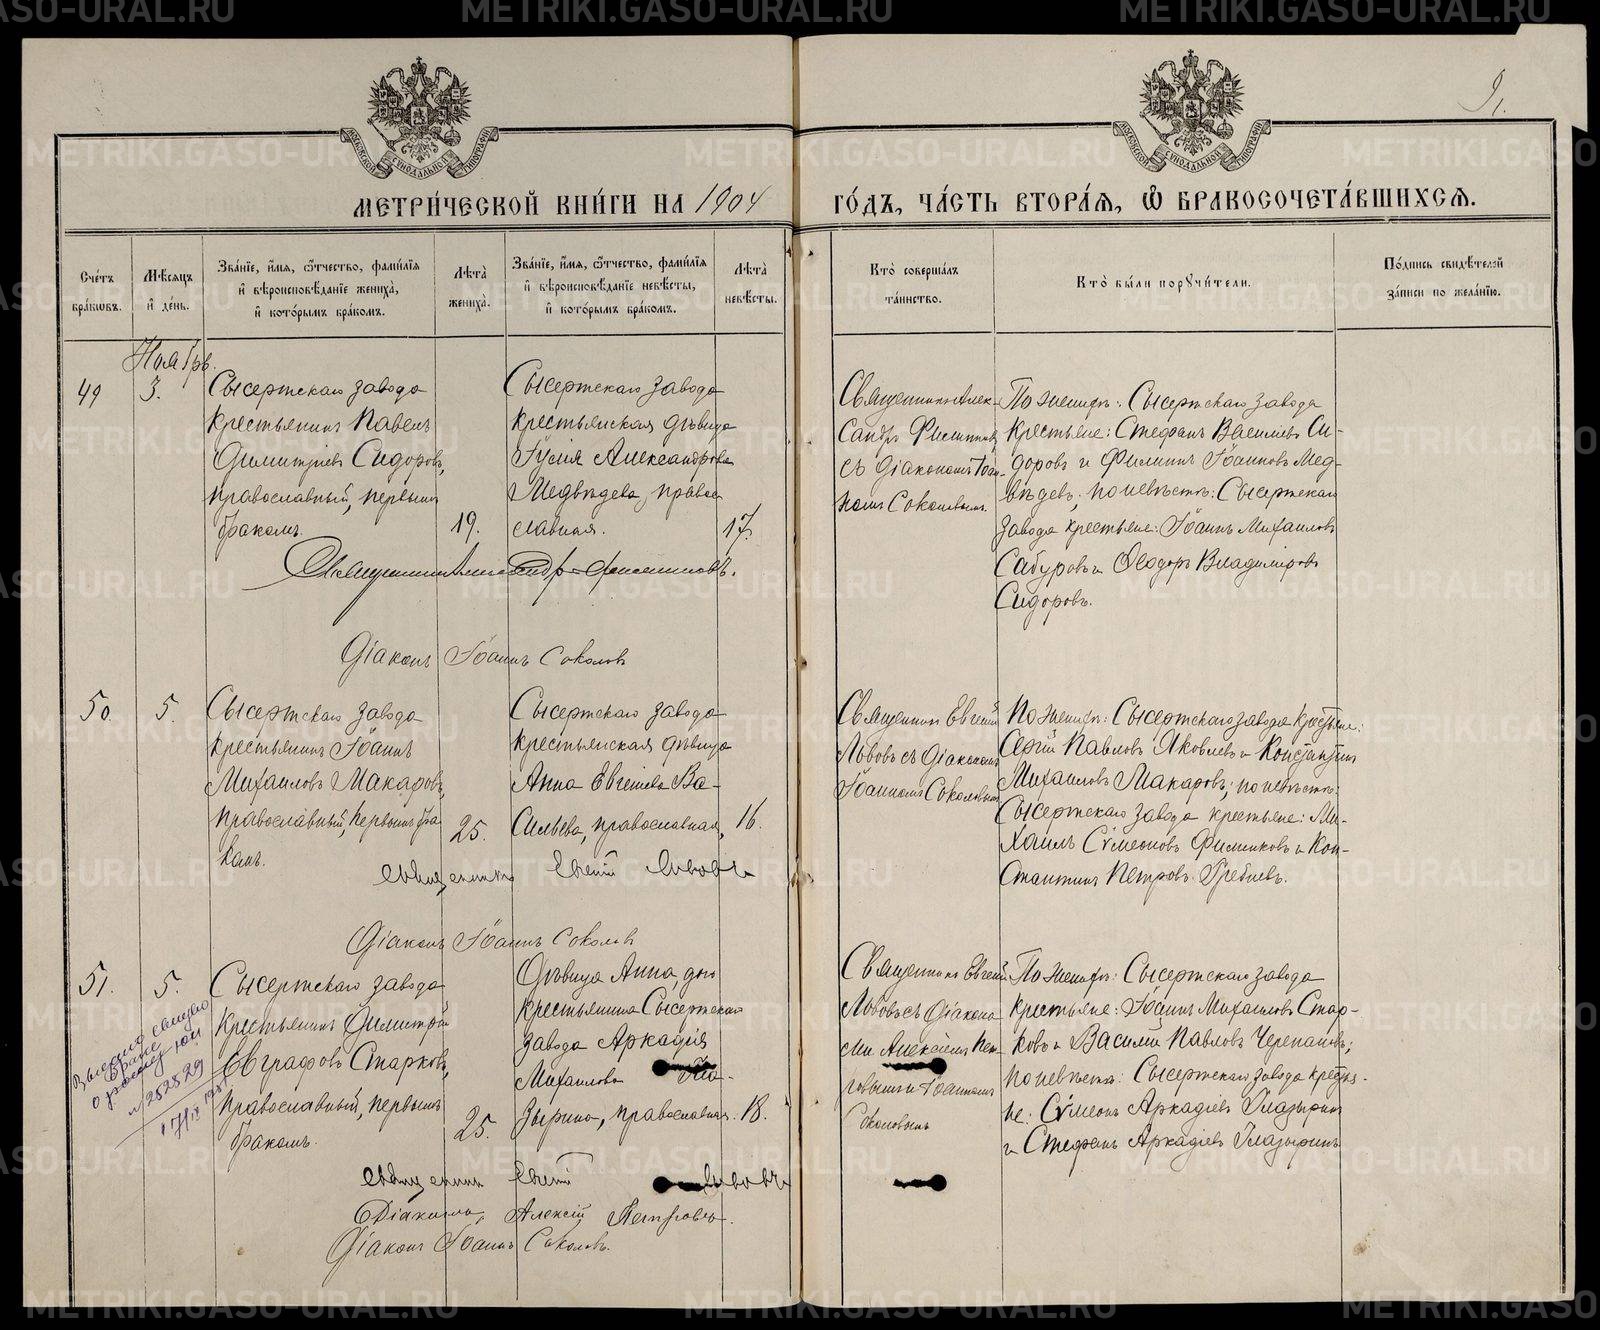 91.
МЕТРИ́ЧЕСКОЙ КНИ́ГИ НА 1904
ГО́ДЪ, ЧА́СТЬ ВТОРА́Я, Ѽ БРАКОСОЧЕТА́ВШИХСЯ.
Сче́тъ бра́ковъ.
Мѣ́сяцъ и҆ де́нь.
Зва́нїе, и҆́мя, ѻ҆́тчество, фами́лїя и҆ вѣроисповѣ́данїе жениха̀, и҆ кото́рымъ бра́комъ.
Лѣта̀ жениха̀.
Зва́нїе, и҆́мя, ѻ҆́тчество, фами́лїя и҆ вѣроисповѣ́данїе невѣ́сты, и҆ кото́рымъ бра́комъ.
Лѣта̀ невѣ́сты.
Кто̀ соверша́лъ та́инство.
Кто̀ бы́ли порꙋчи́тели.
По́дпись свидѣ́телей за́писи по жела́нїю.
Ноябрь.
49
3.
Сысертскаго завода
крестьянинъ Павелъ
Димитріевъ Сидоровъ,
православный, первымъ
бракомъ.
19.
Сысертскаго завода
крестьянская дѣвица
Іулія Александрова
Медвѣдева, право-
славная.
17.
Священникъ Алек-
сандръ Филипповъ
съ діакономъ Іоан-
номъ Соколовымъ.
По женихѣ: Сысертскаго завода
крестьяне: Стефанъ Василіевъ Си-
доровъ и Филиппъ Іоанновъ Мед-
вѣдевъ; по невѣстѣ: Сысертскаго
завода крестьяне: Іоаннъ Михаиловъ
Сабуровъ и Ѳеодоръ Владиміровъ
Сидоровъ.
Священникъ Александръ Филипповъ.
Діаконъ Іоаннъ Соколовъ
50.
5.
Сысертскаго завода
крестьянинъ Іоаннъ
Михаиловъ Макаровъ,
православный, первымъ бра-
комъ.
25.
Сысертскаго завода
крестьянская дѣвица
Анна Евгеніева Ва-
сильева, православная,
16.
Священникъ Евгеній
Львовъ съ діакономъ
Іоанномъ Соколовымъ
По женихѣ: Сысертскаго завода крестьяне:
Сергій Павловъ Яковлевъ и Константинъ
Михаиловъ Макаровъ; по невѣстѣ:
Сысертскаго завода крестьяне: Ми-
хаилъ Сѵмеоновъ Филинковъ и Кон-
стантинъ Петровъ Гребневъ.
священникъ Евгеній Львовъ
Діаконъ Іоаннъ Соколовъ
51.
5.
Сысертскаго завода
крестьянинъ Димитрій
Евграфовъ Старковъ,
православный, первымъ
бракомъ.
25.
Дѣвица Анна, дочь
крестьянина Сысертскаго
завода Аркадія
Михаилова Гла-
зырина, православная.
18.
Священникъ Евгеній
Львовъ съ діакона-
ми Алексіемъ Пет-
ровымъ и Іоанномъ
Соколовымъ
По женихѣ: Сысертскаго завода
крестьяне: Іоаннъ Михаиловъ Стар-
ковъ и Василій Павловъ Черепановъ;
по невѣстѣ: Сысертскаго завода крестья-
не: Сѵмеонъ Аркадіевъ Глазыринъ
и Стефанъ Аркадіевъ Глазыринъ
о браке
№ 282829
17/IX
священникъ Евгеній Львовъ
Діаконъ Алексій Петровъ.
Діаконъ Іоаннъ Соколовъ.
METRIKI.GASO-URAL.RU